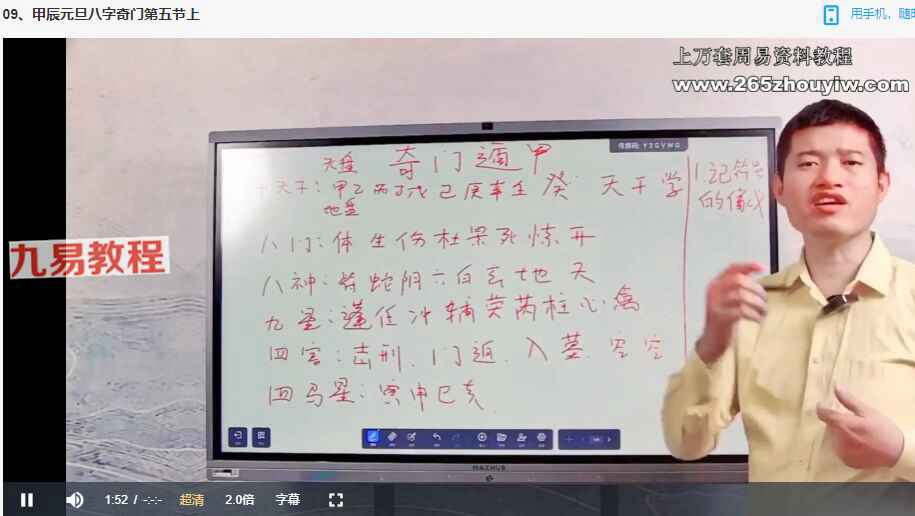 09、甲辰元旦八字奇门第五节上
用手机，随时
上万套周易资料教程
www.265zhouyiw.com
九易教程
传屏码: Y2GVWG
天盘 奇门遁甲
十天干：甲乙丙丁戊己庚辛壬癸 天干学
地盘
1.记符号
的像义
八门：体生伤杜景死惊开
八神：符蛇阴六白玄地天
九星：蓬任冲辅英芮柱心禽
四害：击刑、门迫、入墓、空空
四马星：寅申巳亥
MAXHUB
1:52 / -:-:-
超清
2.0倍
字幕